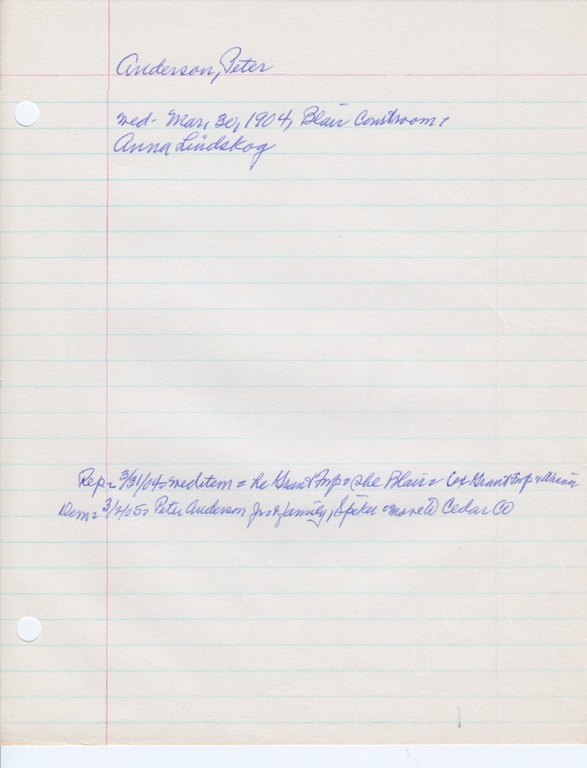 Anderson, Peter
wed - Mar, 30, 1904, Blair Courtroom =
Anna Lindskog
Rep = 3/31/04 = wed item = he Grant Twp = she Blair =
Dem = 3/2/05 = Peter Anderson Jr & family, Spiker = move to Cedar Co